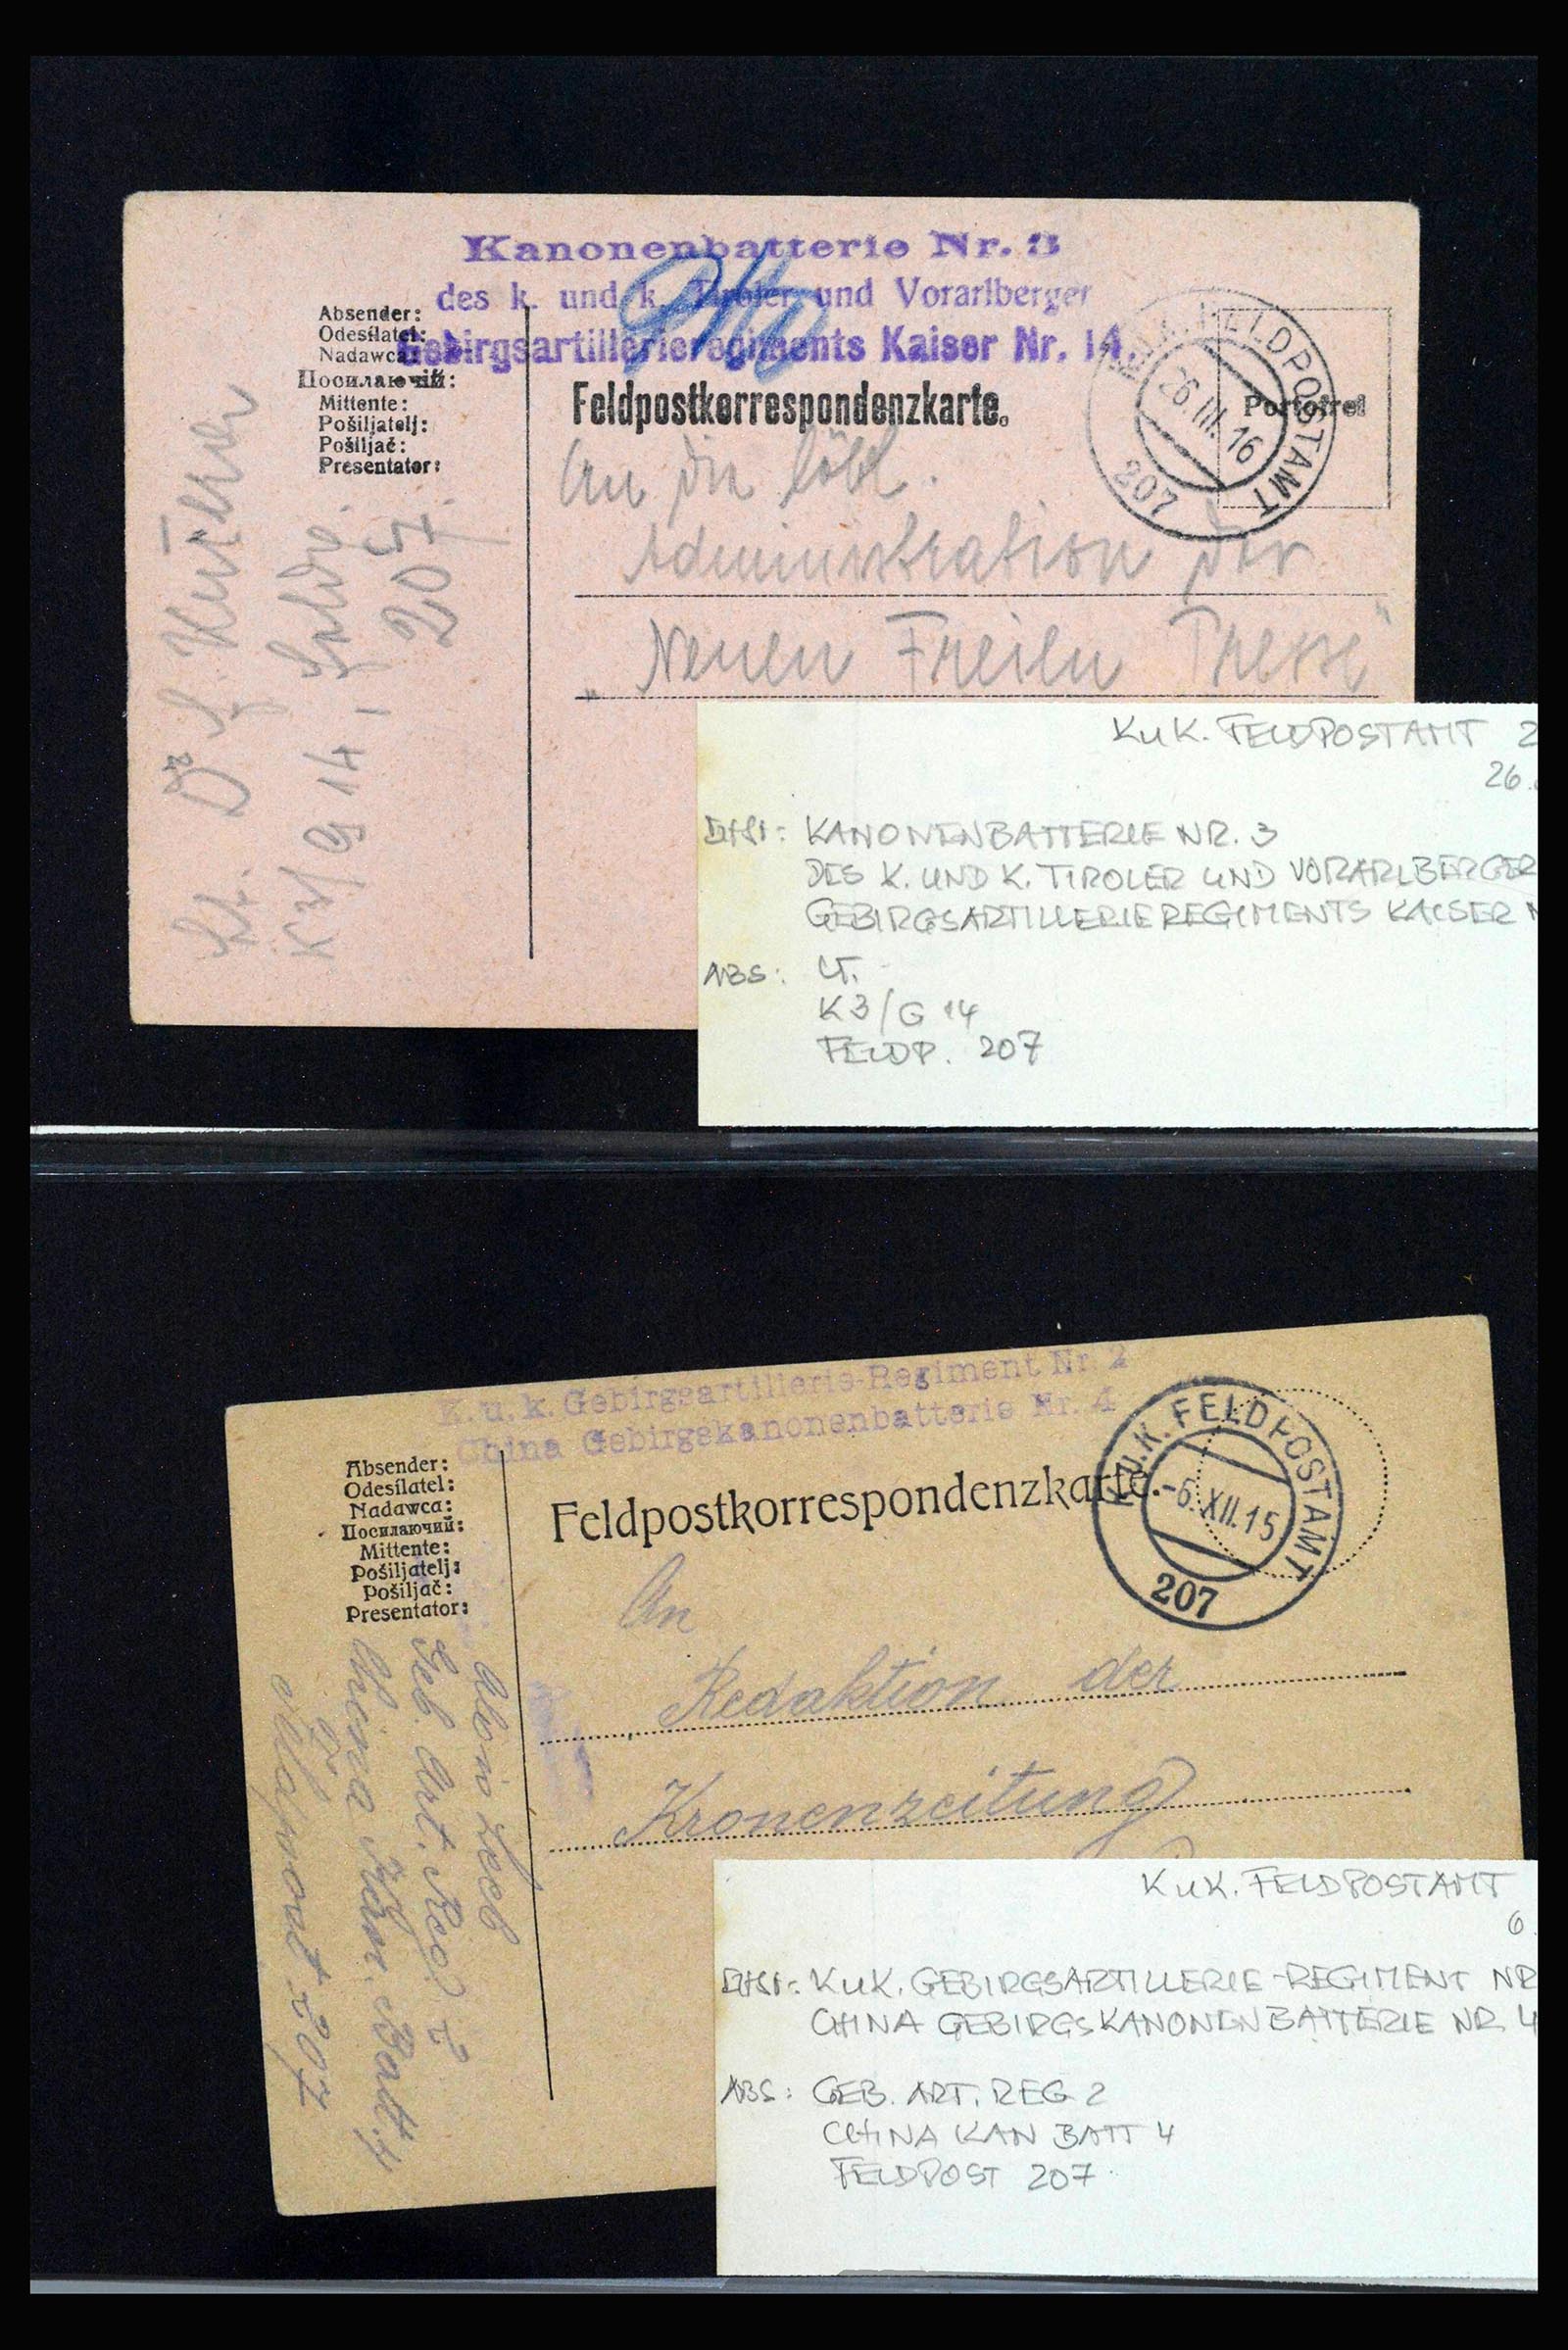 Kanonenbatterie Nr. 3
des k. und k. Tiroler und Vorarlberger
Gebirgsartillerieregiments Kaiser Nr. 14.
Absender:
Odesílatel:
Nadawca:
Посилаючій:
Mittente:
Pošiljatelj:
Pošiljač:
Presentator:
Feldpostkorrespondenzkarte.
Portofrei
K.u.K. FELDPOSTAMT
26.III.16
207
An die löbl.
Administration der
„Neuen Freien Presse"
Lt. Dr
K3/G 14,
207
KuK. FELDPOSTAMT 2
26.
KANONENBATTERIE NR. 3
DES K. UND K. TIROLER UND VORARLBERGER
GEBIRGSARTILLERIEREGIMENTS KAISER N
ABS: LT.
K3/G 14
FELDP. 207
K.u.k. Gebirgsartillerie-Regiment Nr. 2
China Gebirgskanonenbatterie Nr. 4
Absender:
Odesílatel:
Nadawca:
Посилаючий:
Mittente:
Pošiljatelj:
Pošiljač:
Presentator:
Feldpostkorrespondenzkarte.
K.u.K. FELDPOSTAMT
-6.XII.15
207
An
Redaktion der
Kronenzeitung
Alois
Geb. Art. Reg. 2
China Kan. Batt. 4
Feldpost 207
KuK. FELDPOSTAMT
6.
KuK. GEBIRGSARTILLERIE-REGIMENT NR
CHINA GEBIRGSKANONENBATTERIE NR. 4
ABS: GEB. ART. REG 2
CHINA KAN BATT 4
FELDPOST 207